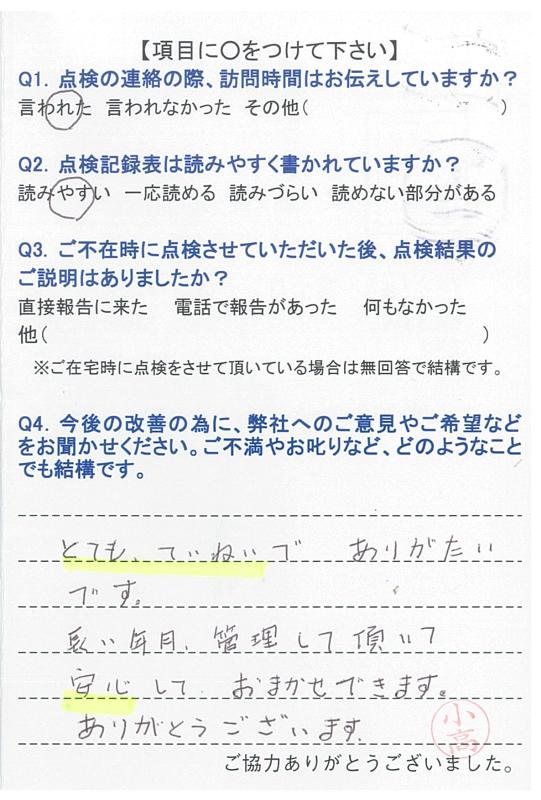 【項目に〇をつけて下さい】
Q1. 点検の連絡の際、訪問時間はお伝えしていますか？
言われた 言われなかった その他( )
Q2. 点検記録表は読みやすく書かれていますか？
読みやすい 一応読める 読みづらい 読めない部分がある
Q3. ご不在時に点検させていただいた後、点検結果の
ご説明はありましたか？
直接報告に来た 電話で報告があった 何もなかった
他( )
※ご在宅時に点検をさせて頂いている場合は無回答で結構です。
Q4. 今後の改善の為に、弊社へのご意見やご希望など
をお聞かせください。ご不満やお叱りなど、どのようなこと
でも結構です。
とても、ていねいで ありがたい
です。
長い年月、管理して頂いて
安心して おまかせできます。
ありがとうございます.
小高
ご協力ありがとうございました。